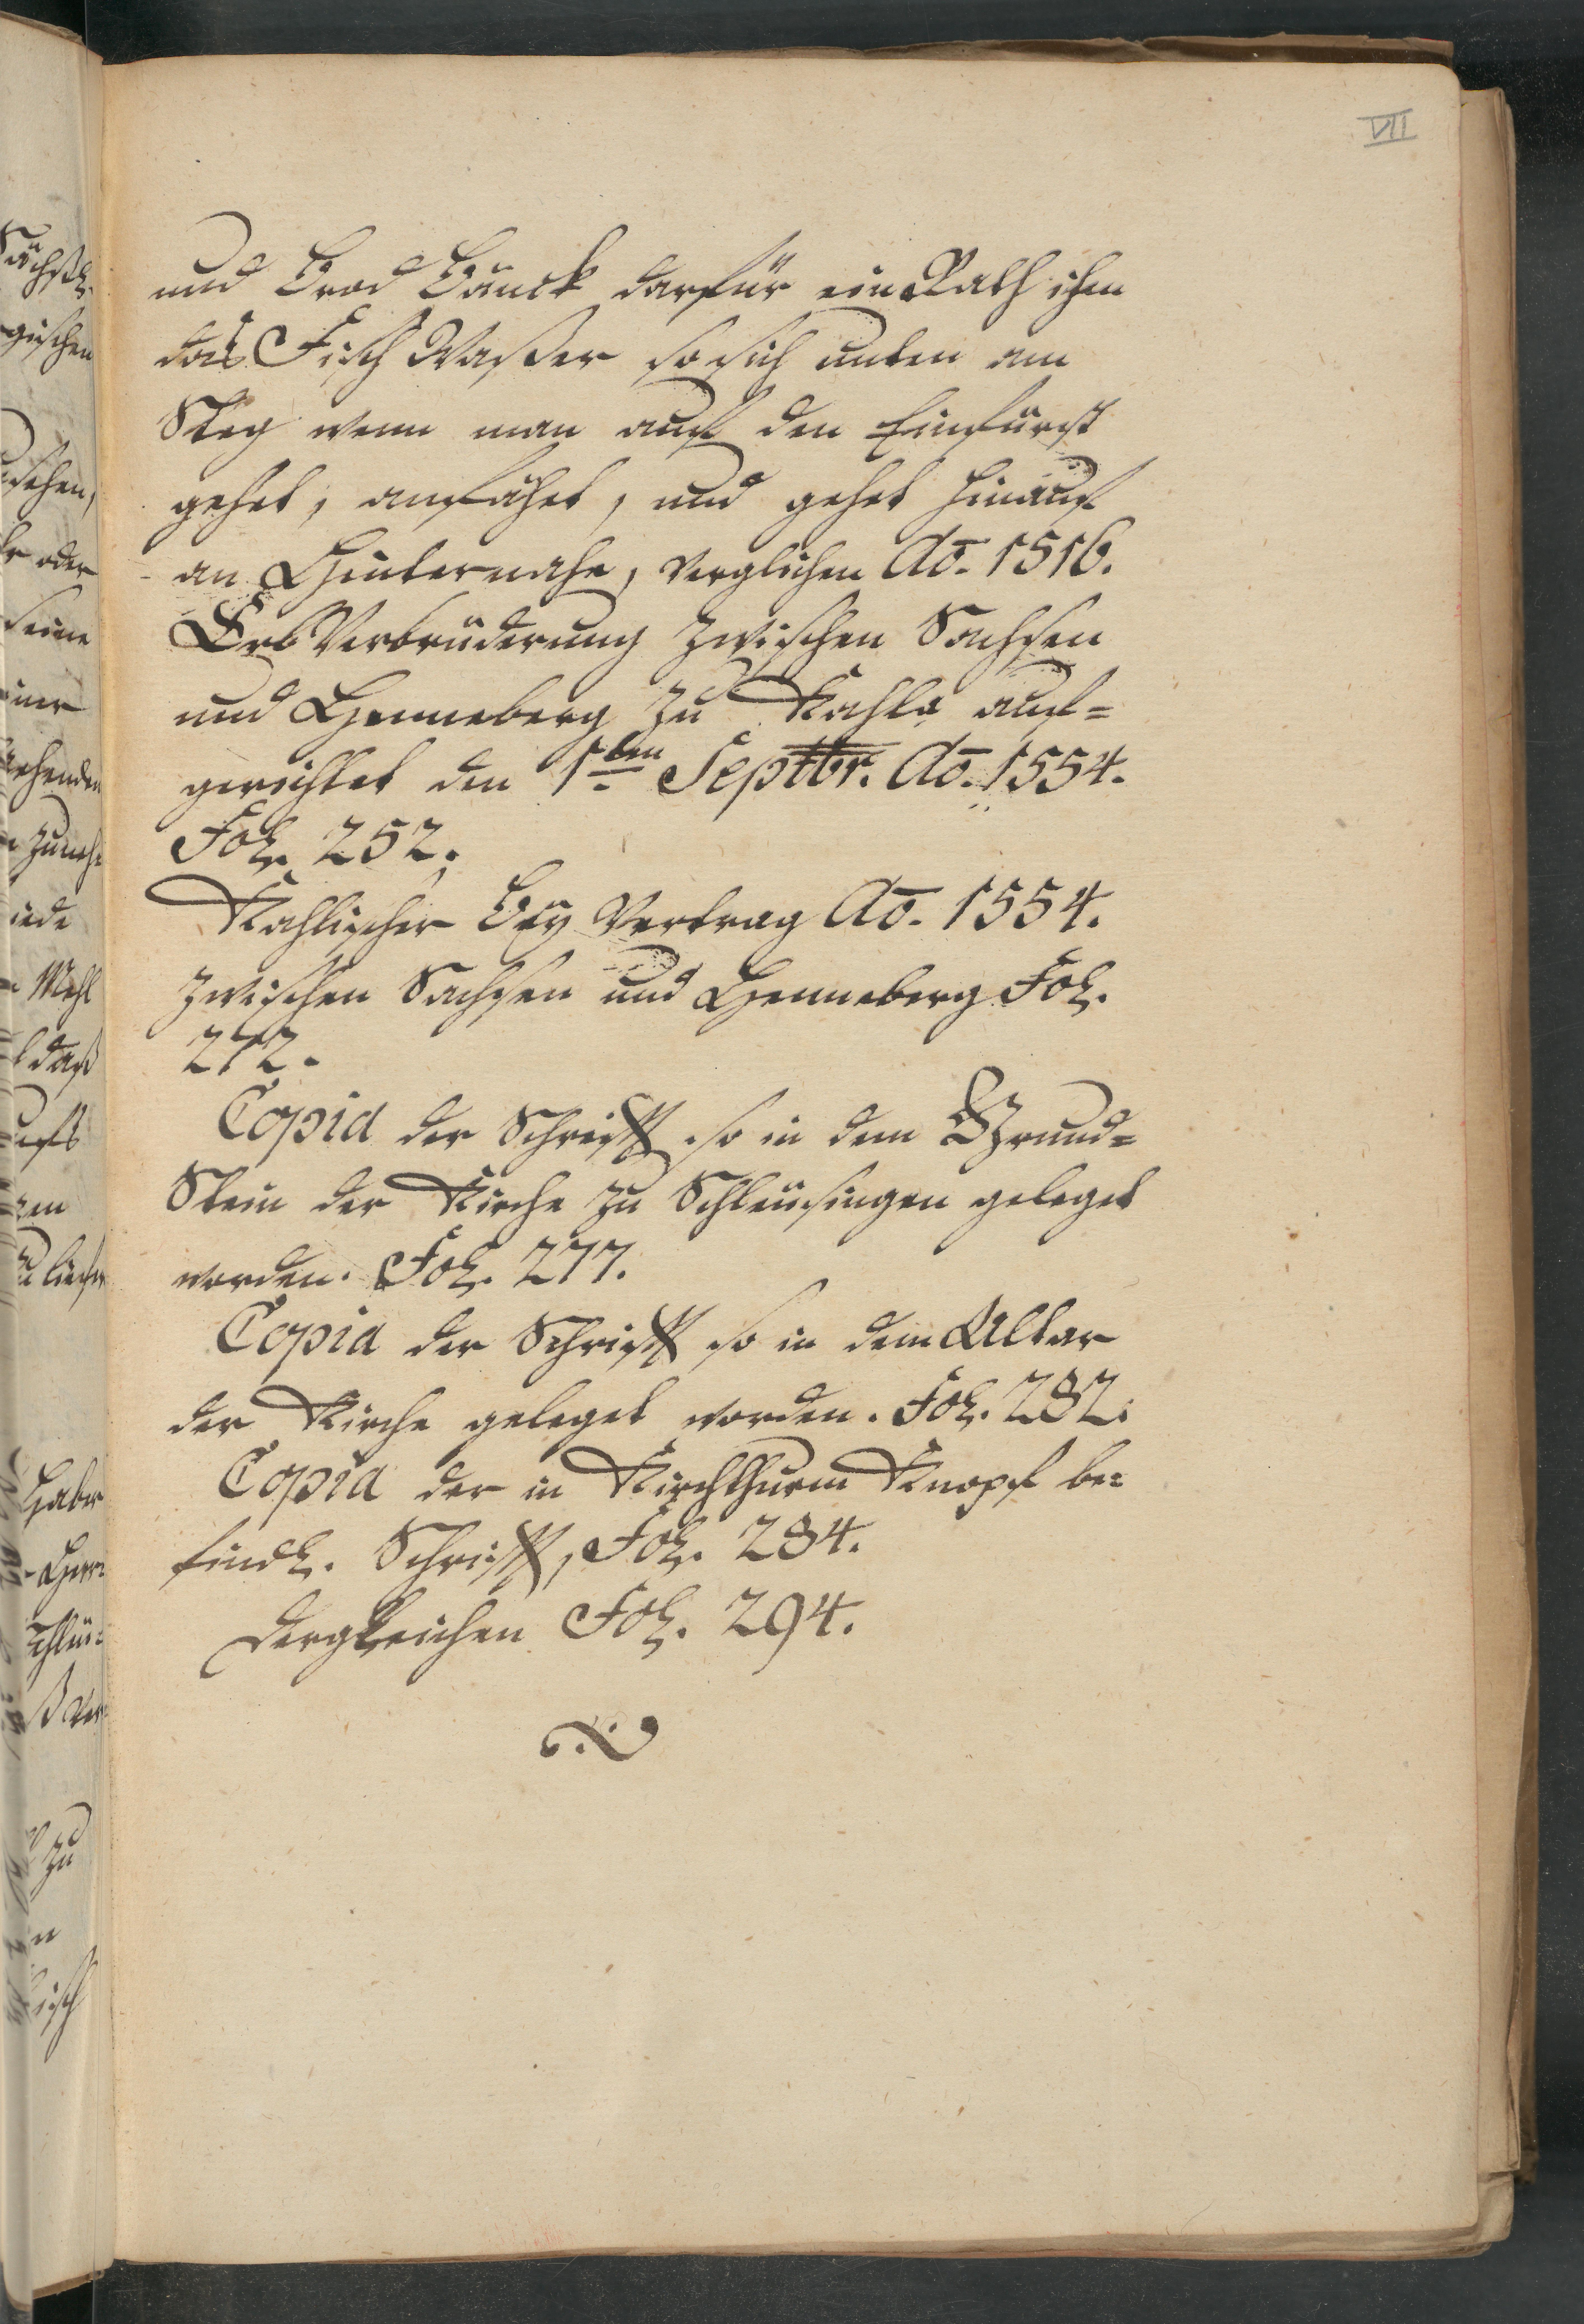 VII
und Brod Bänck darfür ein Rath ihm
das Fisch Waßer so sich unten am
Steg wenn man auf den Einfürst
gehet, anfähet, und gehet hinauf
an Hinternahe, verglichen Aō. 1516.
Erb Verbrüderung zwischen Sachsen
und Henneberg zu Kahla auf=
gerichtet den 1ten Septbr. Aō. 1554.
Fol. 252.
Kahlischer Bey Vertrag Aō. 1554.
zwischen Sachsen und Henneberg Fol.
272.
Copia der Schrifft so in dem Grund=
Stein der Kirche zu Schleusingen geleget
worden. Fol. 277.
Copia der Schrifft so in dem Altar
der Kirche geleget worden. Fol. 282.
Copia der in Kirchthurm Knopf be=
findl. Schrifft, Fol. 284.
dergleichen Fol. 294.